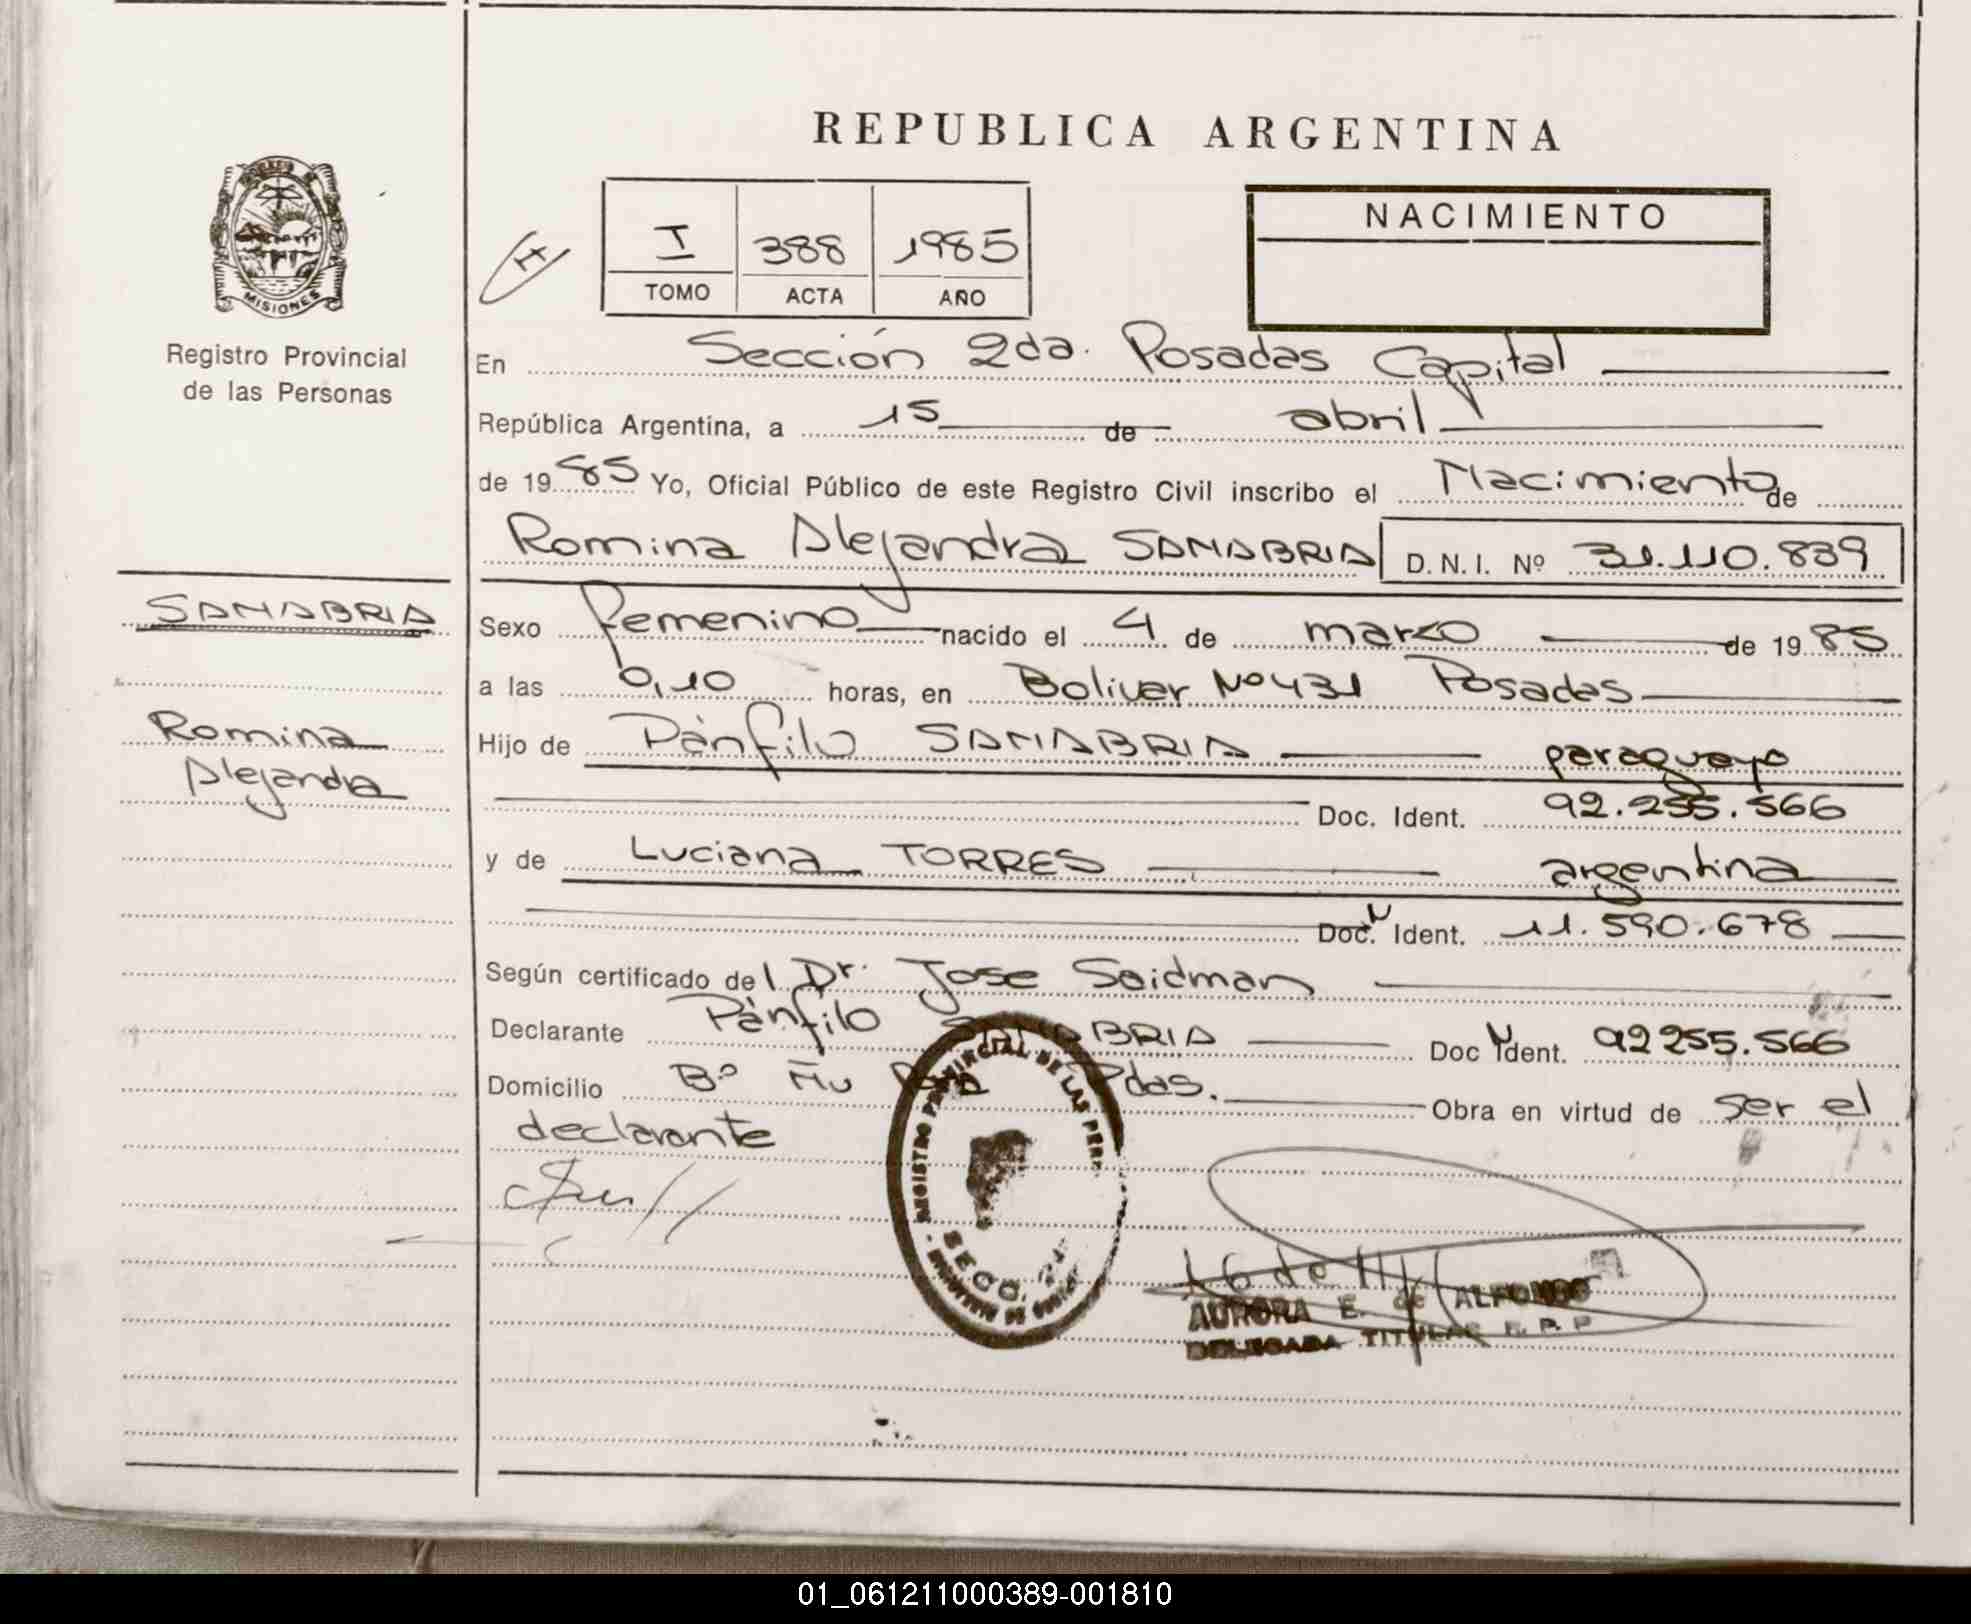 REPUBLICA ARGENTINA
MISIONES
Registro Provincial
de las Personas
I 388 1985
TOMO ACTA AÑO
NACIMIENTO
En Sección 2da. Posadas Capital
República Argentina, a 15 de abril
de 19 85 Yo, Oficial Público de este Registro Civil inscribo el Nacimiento de
Romina Alejandra SANABRIA D.N.I. Nº 31.110.839
SANABRIA
Romina
Alejandra
Sexo femenino nacido el 4 de marzo de 19 85
a las 0,10 horas, en Bolivar Nº 431 Posadas
Hijo de Pánfilo SANABRIA paraguayo
Doc. Ident. 92.255.566
y de Luciana TORRES argentina
Doc. N Ident. 11.590.678
Según certificado del Dr. Jose Saidman
Declarante Pánfilo SANABRIA Doc N Ident. 92255.566
Domicilio Bº Ñu Pora Pdas. Obra en virtud de ser el
declarante
REGISTRO PROVINCIAL DE LAS PERS
SECC.
AURORA E. de ALFONSO
DELEGADA TITULAR R. P. P
01_061211000389-001810